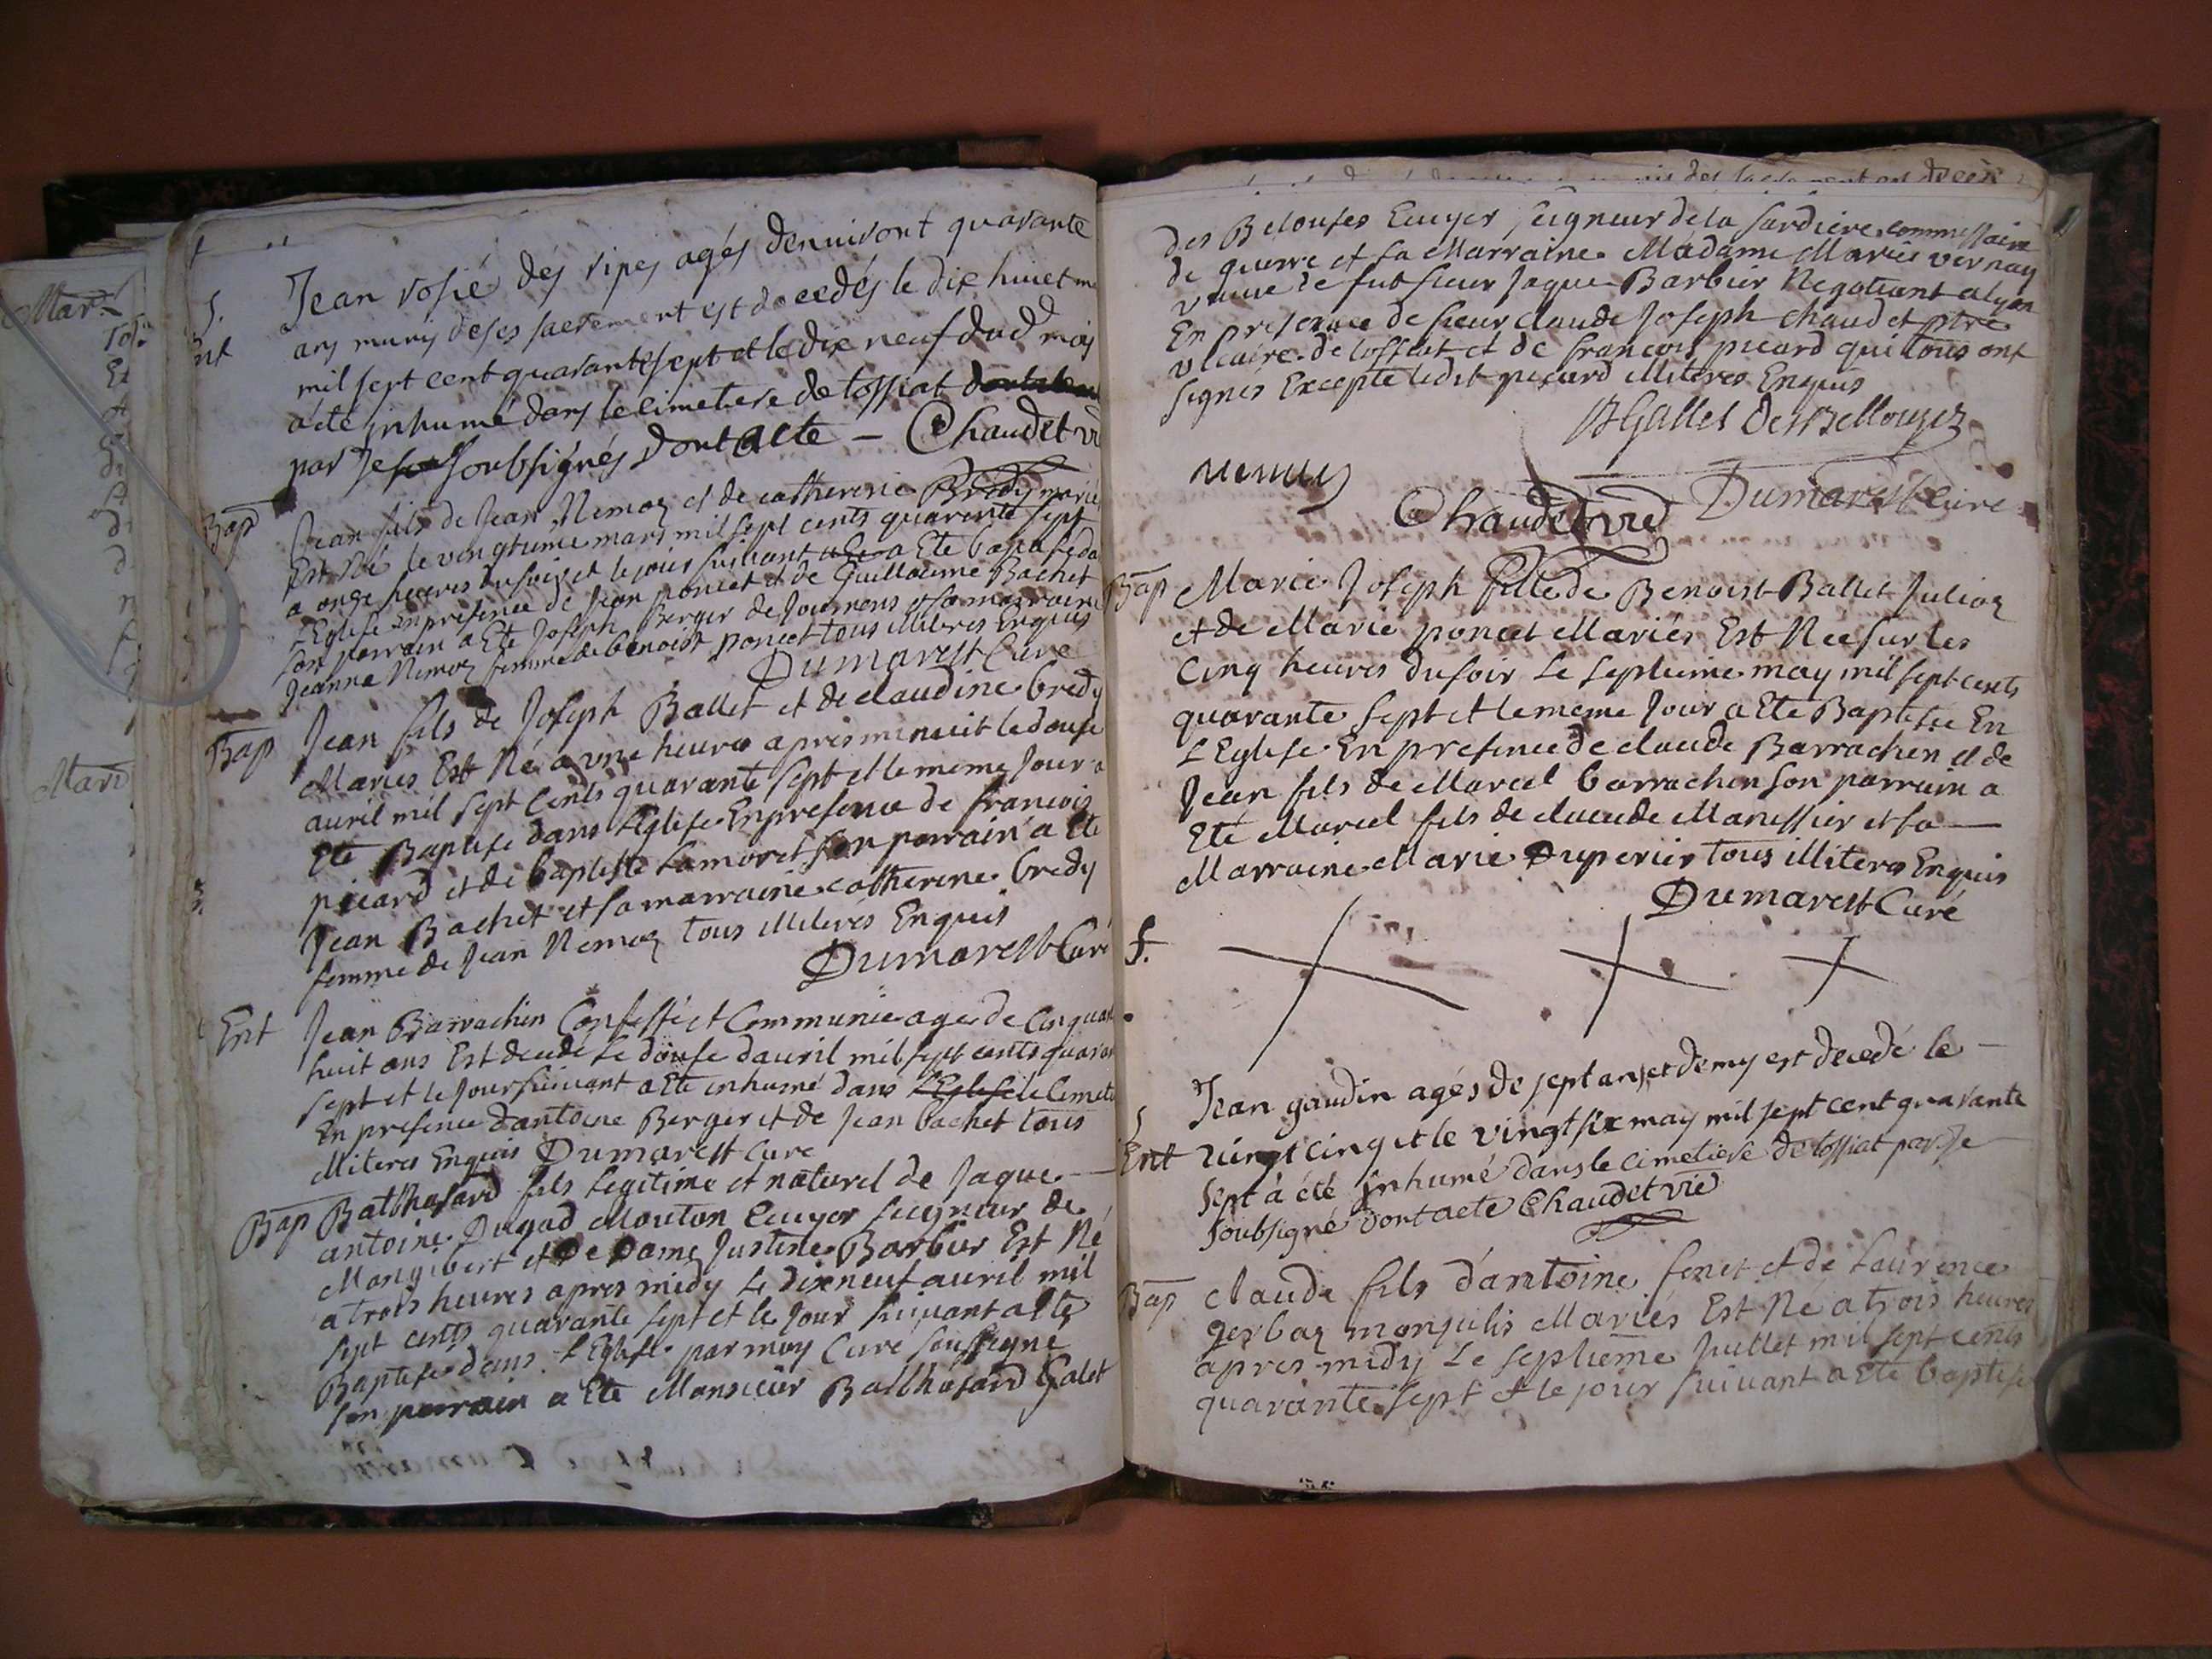 Mar
Mari
Jean rosié dés ripes agés denuiront quarante
S.
Ent
ans munis deses sacrement est decedés le dix huict m
mil sept cent quarante sept et le dix neuf dud mois
a été inhumé dans le cimetiere de tossiat
par Je soubsignés dont acte – Chaudet vi
Bap
Jean fils de Jean Nemoz et de catherine Bredy mariés
Est Né le vingtieme mars mil sept cents quarente sept
a onze heures du soir et le jour suiuant a Ete baptise da
L'Eglise En presence de Jean poncet et de Guillaume Bachet
son parrain a Ete Joseph Berger de Journans et sa marraine
Jeanne Nemoz femme de benoist poncet tous illiteres Enquis
Dumarest Curé
Bap
Jean fils de Joseph Ballet et de claudine bredy
Mariés Est Né a vne heures apres minuit le douse
auril mil sept Cents quarante sept et le meme Jour a
Ete Baptise dans L'Eglise En presence de francois
picard et de baptiste Lamoret son parrain a Ete
Jean Bachet et sa marraine catherine bredy
femme de Jean Nemoz tous illiteres Enquis
Dumarest Curé
Ent
Jean Barrachin Confessé et Communie agé de Cinquan
huit ans Est decede Le douse d'auril mil sept cents quaran
sept et le Jour suiuant a Ete inhumé dans L'Eglise le Cimeti
En presence d'antoine Berger et de Jean bachet tous
illiteres Enquis Dumarest Curé
Bap
Balthasard fils Legitime et naturel de Jaque
antoine Dugad Mouton Ecuyer Seigneur de
Mangibert et de Dame Justine Barbier Est Né
a trois heures apres midy Le dix neuf auril mil
sept cents quarante sept et le Jour suiuant a Ete
Baptise dans L'Eglise par moy Curé soussigne
son parrain a Ete Monsieur Balthasard Galet
des Belouses Ecuyer Seigneur de la Sardiere commissaire
de guerre et sa Marraine Madame Marie vernay
veuue de fut sieur Jaque Barbier Negotiant a lyon
En presence de sieur claude Joseph chaudet ptre
vicaire de tossiat et de francois picard qui tous ont
signés Excepte ledit picard illiteres Enquis
BGallet DesBellouzes
Chaudet vic
Dumarest Curé
Bap
Marie Joseph fille de Benoist Ballet Julion
et de Marie poncet Mariés Est Nee sur les
Cinq heures du soir Le septieme may mil sept cents
quarante sept et le meme Jour a Ete Baptisee En
L'Eglise En presence de claude Barrachin et de
Jean fils de Marcel barrachin son parrain a
Eté Marcel fils de claude Manissier et sa
Marraine Marie Duperier tous illiteres Enquis
Dumarest Curé
S.
Jean gaudin agés de sept ans et demy est decedé le
Ent
vingt cinq et le vingt six may mil sept cent quarante
sept à été Inhumé dans le cimetiere de tossiat par Je
soubsigné dont acte Chaudet vic
Bap
claude fils d'antoine fenet et de Laurence
gerbaz monjulis Mariés Est Né a trois heures
apres midy Le septieme Juillet mil sept cents
quarante sept et le jour suiuant a Ete baptise